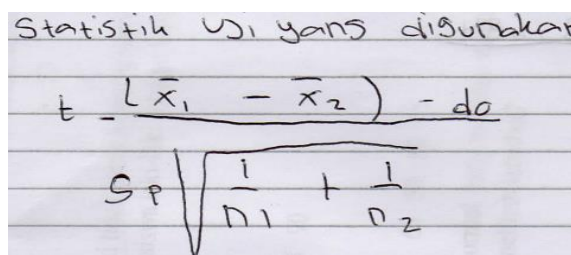 Statistik Uji yang digunakan
t = (x̄₁ - x̄₂) - do
Sp √ 1/n1 + 1/n2